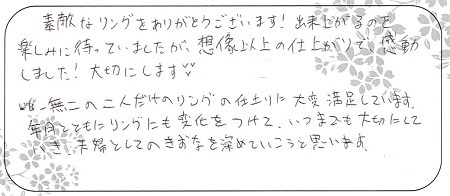 素敵なリングをありがとうございます！出来上がるのを
楽しみに待っていましたが、想像以上の仕上がりで、感動
しました！大切にします♡
唯一無二の二人だけのリングの仕上りに大変満足しています。
年月とともにリングにも変化をつけて、いつまでも大切にして
いき、夫婦としてのきずなを深めていこうと思います。